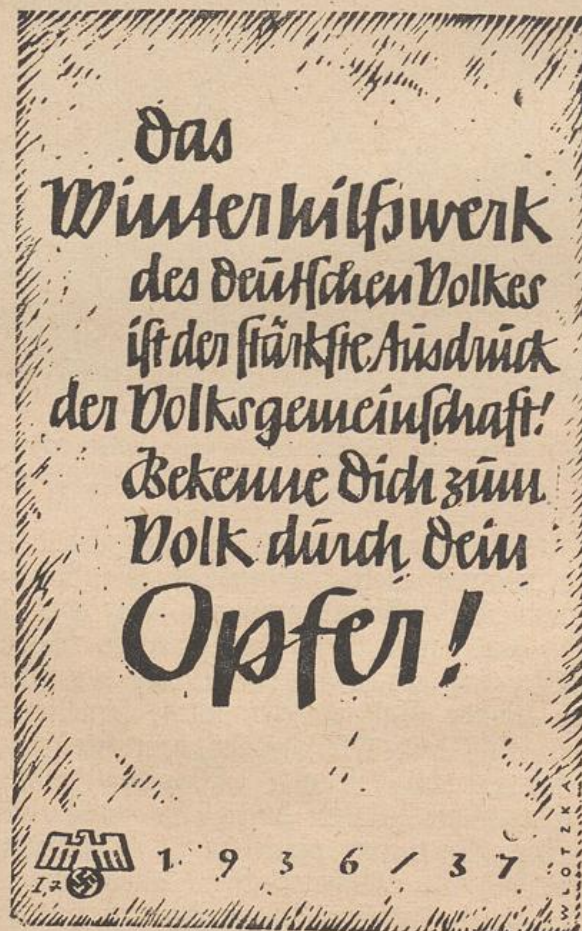 Das
Winterhilfswerk
des deutschen Volkes
ist der stärkste Ausdruck
der Volksgemeinschaft!
Bekenne Dich zum
Volk durch Dein
Opfer!
I.7
1936/37
WLOTZKA